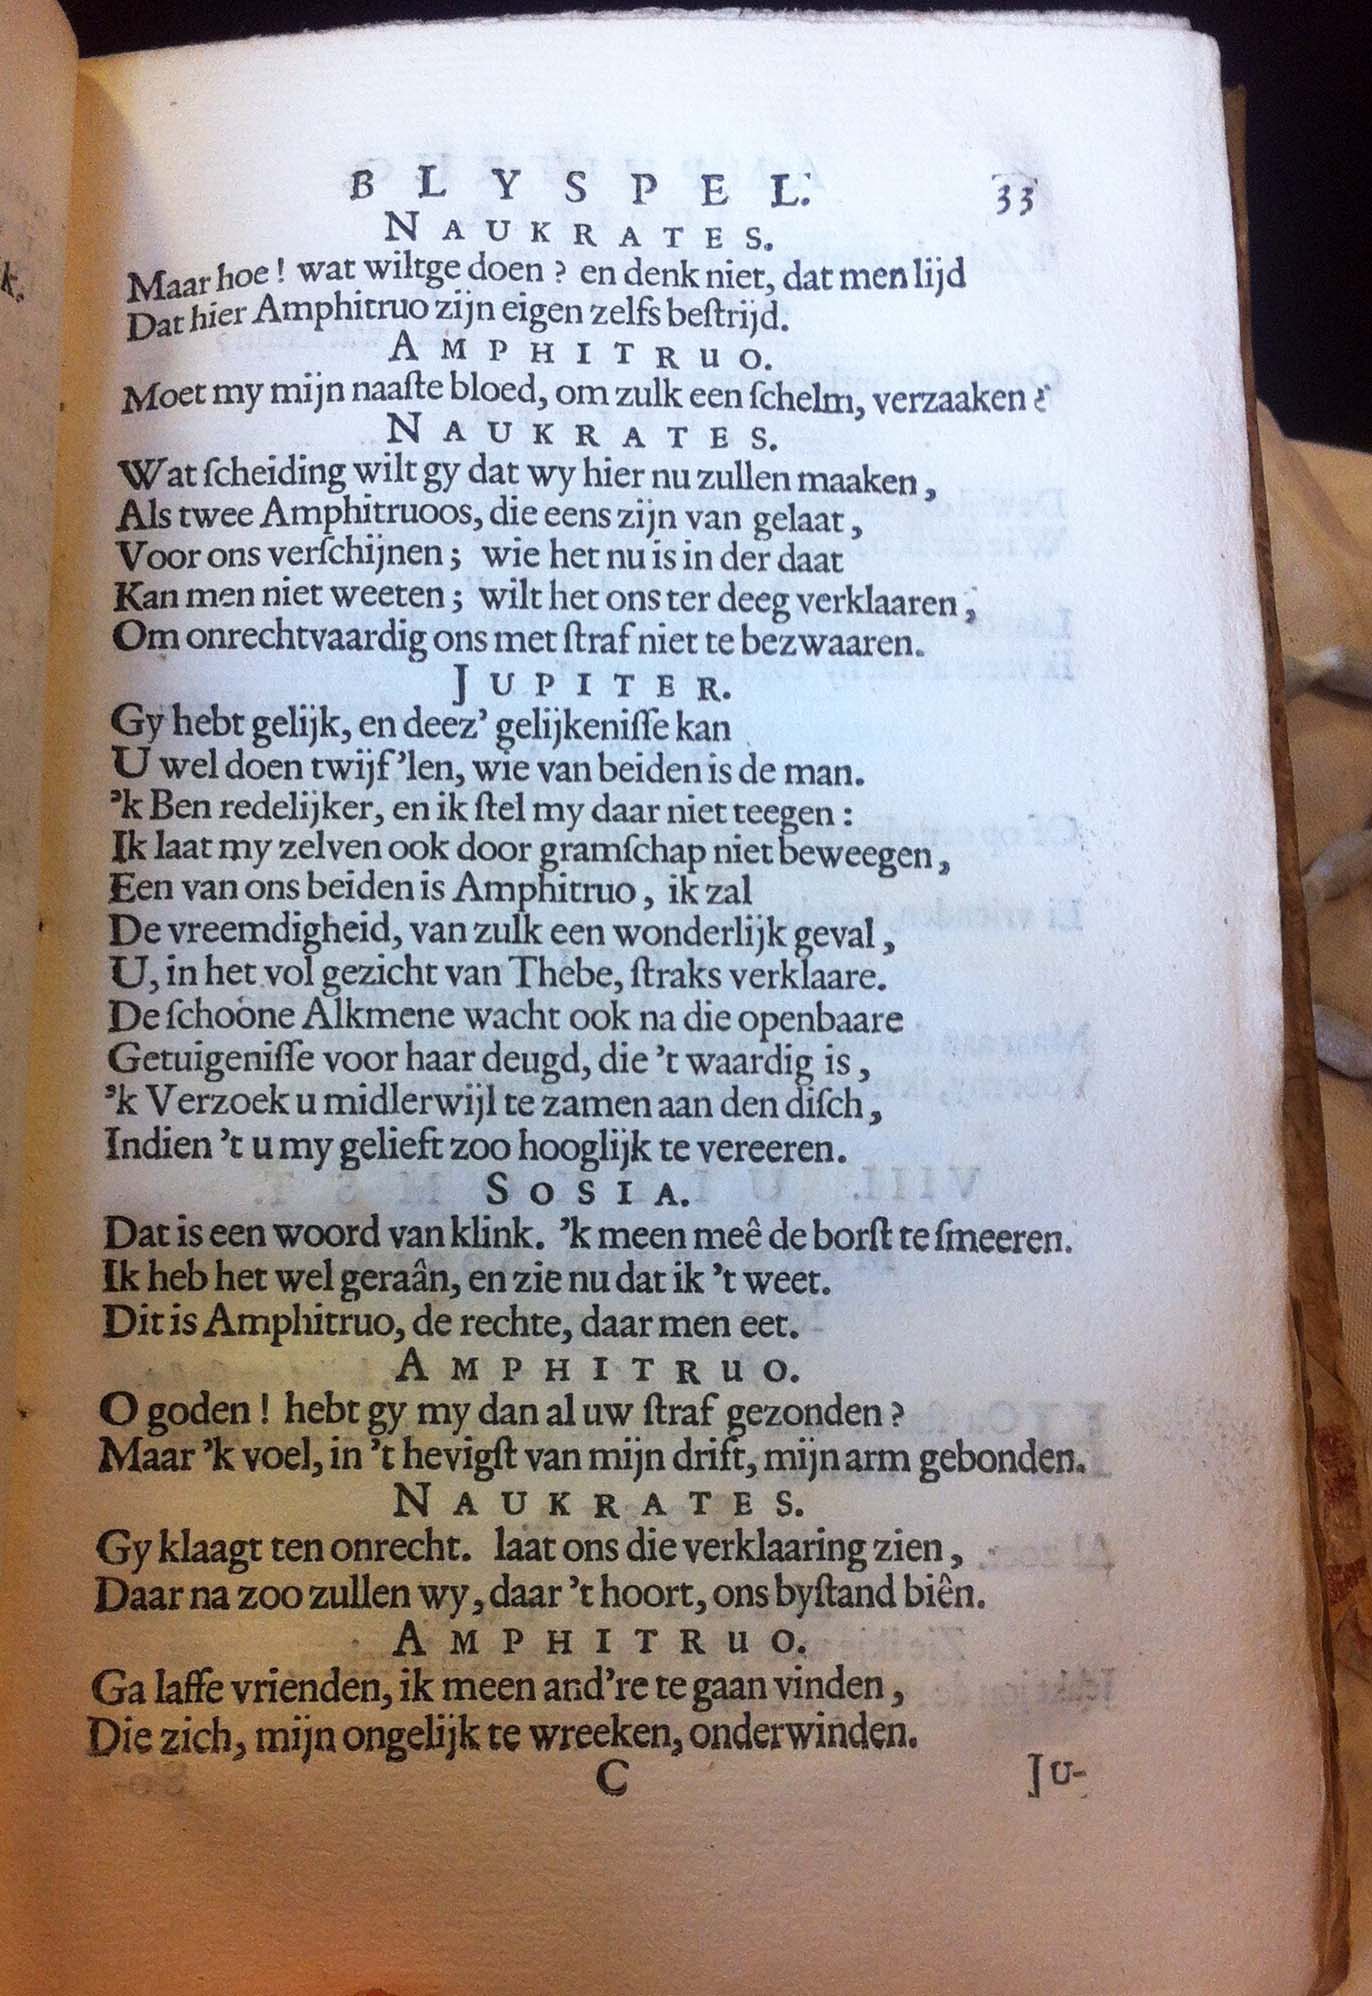 BLYSPEL. 33
NAUKRATES.
Maar hoe! wat wiltge doen? en denk niet, dat men lijd
Dat hier Amphitruo zijn eigen zelfs beſtrijd.
AMPHITRUO.
Moet my mijn naaſte bloed, om zulk een ſchelm, verzaaken?
NAUKRATES.
Wat ſcheiding wilt gy dat wy hier nu zullen maaken,
Als twee Amphitruoos, die eens zijn van gelaat,
Voor ons verſchijnen; wie het nu is in der daat
Kan men niet weeten; wilt het ons ter deeg verklaaren,
Om onrechtvaardig ons met ſtraf niet te bezwaaren.
JUPITER.
Gy hebt gelijk, en deez' gelijkeniſſe kan
U wel doen twijf'len, wie van beiden is de man.
'k Ben redelijker, en ik ſtel my daar niet teegen:
Ik laat my zelven ook door gramſchap niet beweegen,
Een van ons beiden is Amphitruo, ik zal
De vreemdigheid, van zulk een wonderlijk geval,
U, in het vol gezicht van Thebe, ſtraks verklaare.
De ſchoone Alkmene wacht ook na die openbaare
Getuigeniſſe voor haar deugd, die 't waardig is,
'k Verzoek u midlerwijl te zamen aan den diſch,
Indien 't u my gelieft zoo hooglijk te vereeren.
SOSIA.
Dat is een woord van klink. 'k meen meê de borſt te ſmeeren.
Ik heb het wel geraân, en zie nu dat ik 't weet.
Dit is Amphitruo, de rechte, daar men eet.
AMPHITRUO.
O goden! hebt gy my dan al uw ſtraf gezonden?
Maar 'k voel, in 't hevigſt van mijn drift, mijn arm gebonden.
NAUKRATES.
Gy klaagt ten onrecht. laat ons die verklaaring zien,
Daar na zoo zullen wy, daar 't hoort, ons byſtand biên.
AMPHITRUO.
Ga laffe vrienden, ik meen and're te gaan vinden,
Die zich, mijn ongelijk te wreeken, onderwinden.
C JU-